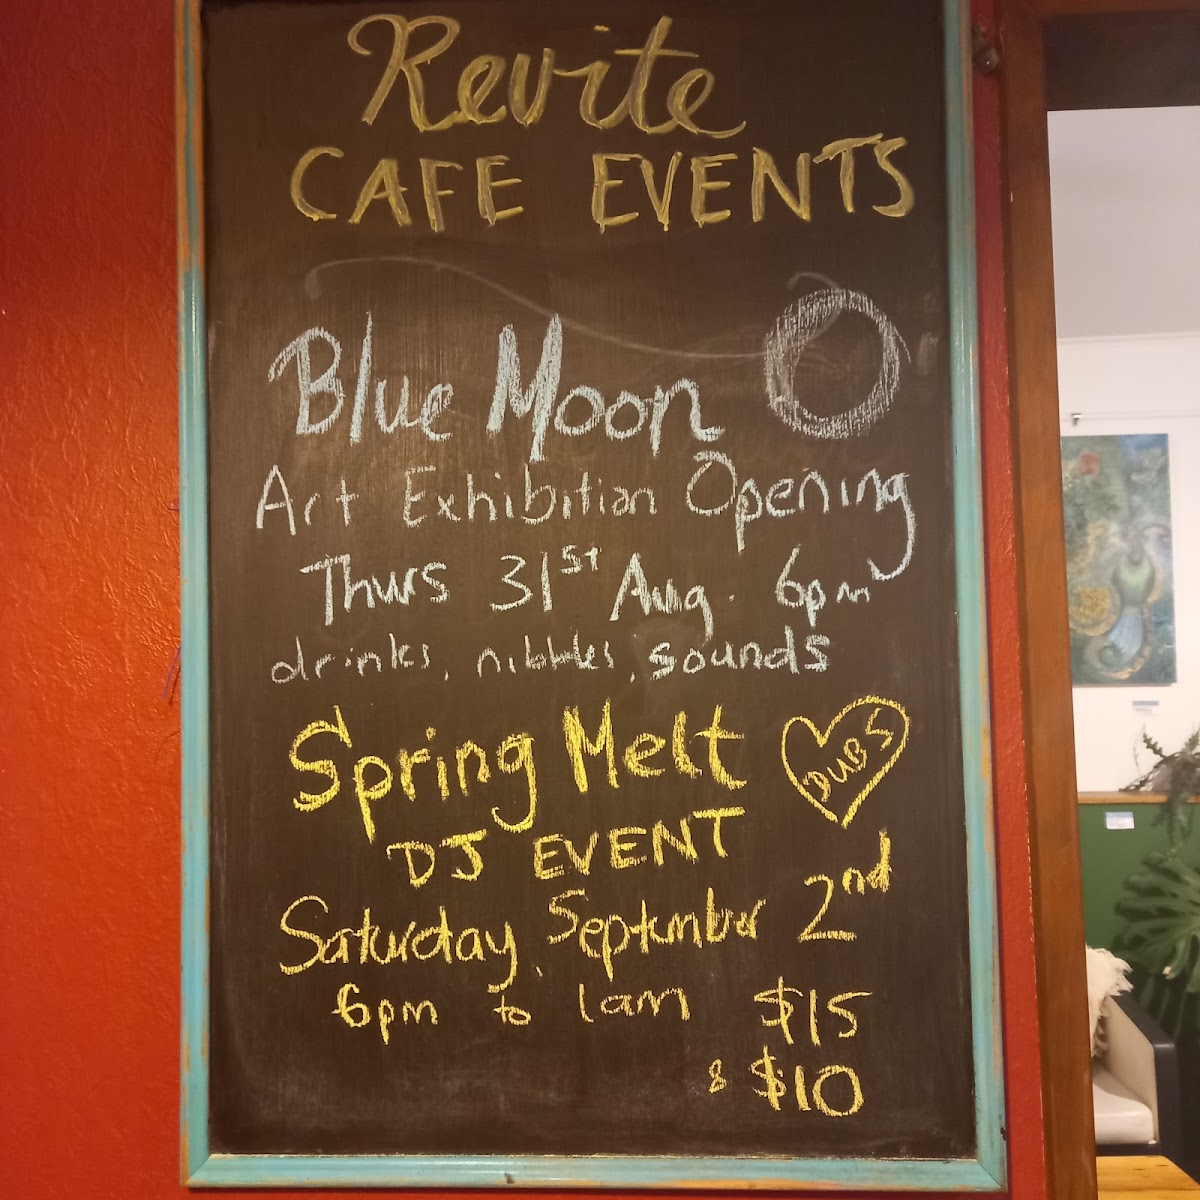 Revite
CAFE EVENTS
Blue Moon
Art Exhibition Opening
Thurs 31st Aug. 6pm
drinks, nibbles, sounds
Spring Melt
DUBS
DJ EVENT
Saturday, September 2nd
6pm to 1am $15
& $10